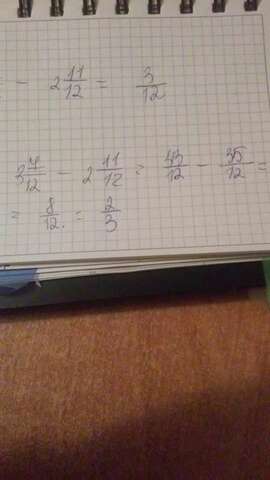 - 2 11/12 = 3/12
3 7/12 - 2 11/12 = 43/12 - 35/12 =
= 8/12 = 2/3